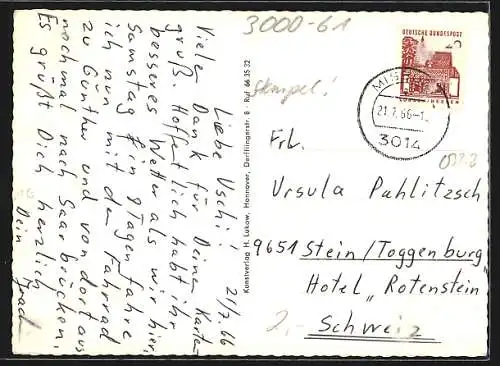 3000-61
Stempel!
DEUTSCHE BUNDESPOST
LORSCH/HESSEN
21.7.66-1
3014
Liebe Uschi!
21/7.66
Vielen Dank für Deinen Karten-
gruß. Hoffentlich habt ihr
besseres Wetter als wir hier.
Samstag in 9 Tagen fahre
ich nun mit dem Fahrrad
zu Günther und von dort aus
nochmal nach Saarbrücken.
Es grüßt Dich herzlich
Dein
Kunstverlag H. Lukow, Hannover, Derfflingerstr. 8 · Ruf 66 35 32
Frl.
Ursula Pahlitzsch
9651 Stein/Toggenburg
Hotel „Rotenstein"
Schweiz
2,-